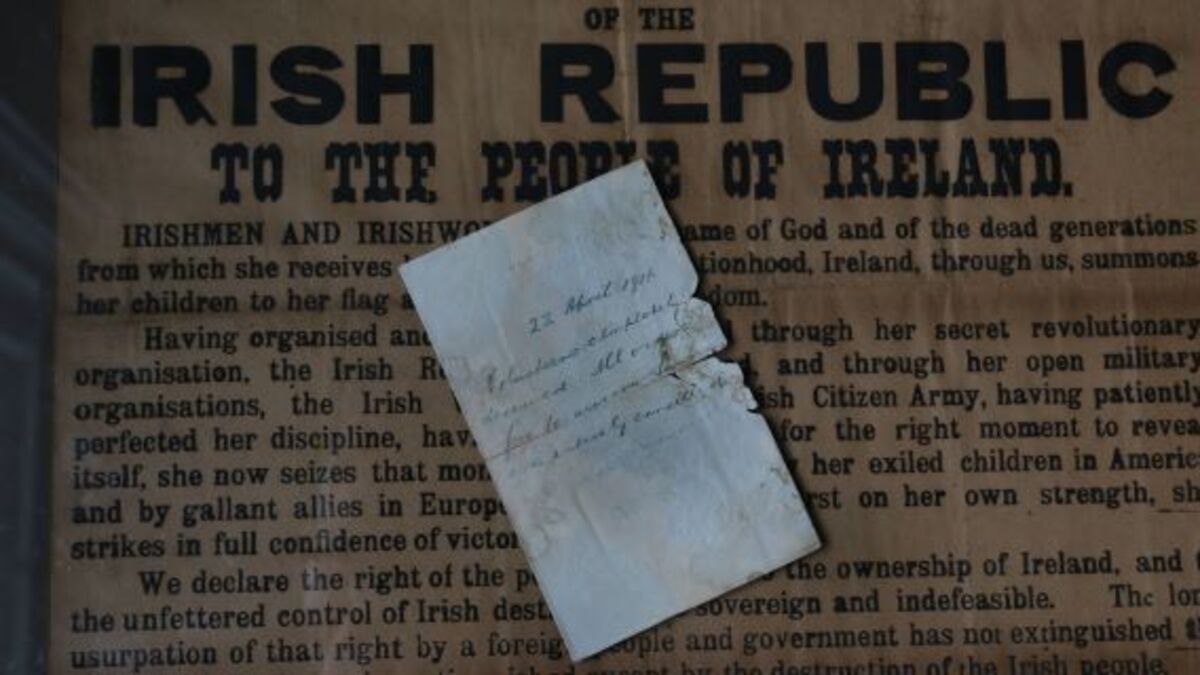 OF THE
IRISH REPUBLIC
TO THE PEOPLE OF IRELAND.
IRISHMEN AND IRISHWO ame of God and of the dead generations
from which she receives tionhood, Ireland, through us, summons
her children to her flag a dom.
Having organised and through her secret revolutionary
organisation, the Irish R d, and through her open military
organisations, the Irish ish Citizen Army, having patiently
perfected her discipline, hav for the right moment to revea
itself, she now seizes that mom her exiled children in Americ
and by gallant allies in Europe rst on her own strength, sh
strikes in full confidence of victor
We declare the right of the pe the ownership of Ireland, and t
the unfettered control of Irish dest sovereign and indefeasible. The lon
usurpation of that right by a foreig eople and government has not extinguished th
except by the destruction of the Irish people.
22 April 1916
Volunteers completely
deceived. All orders
for tomorrow
entirely cancelled